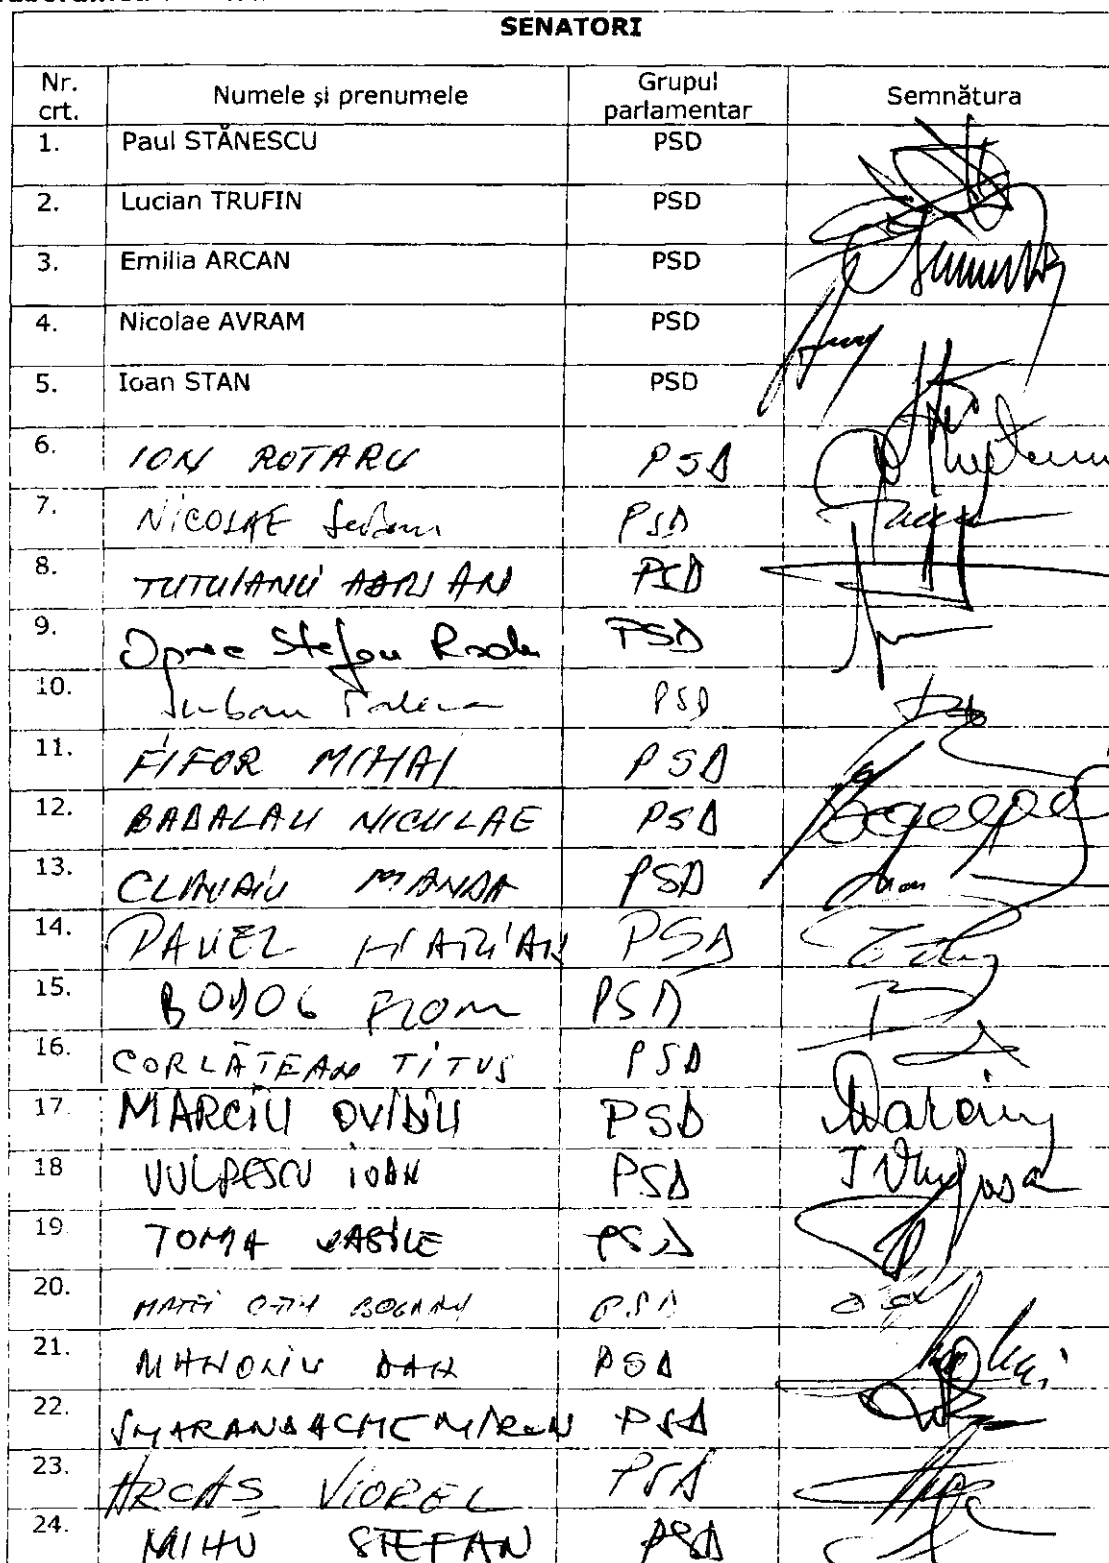 SENATORI
Nr. crt. Numele și prenumele Grupul parlamentar Semnătura
1. Paul STĂNESCU PSD
2. Lucian TRUFIN PSD
3. Emilia ARCAN PSD
4. Nicolae AVRAM PSD
5. Ioan STAN PSD
6. ION ROTARU PSD
7. NICOLAE Șerban PSD
8. TUTUIANU ADRIAN PSD
9. Oprea Stefan Radu PSD
10. PSD
11. FIFOR MIHAI PSD
12. BADALAU NICULAE PSD
13. CLAUDIU MANDA PSD
14. PAVEL MARIAN PSD
15. BODOG FLORIAN PSD
16. CORLĂȚEAN TITUS PSD
17. MARCIU OVIDIU PSD Marciu
18 VULPESCU IOAN PSD
19 TOMA VASILE PSD
20. MATEI BOGDAN PSD
21. MANOLIU DAN PSD
22. SMARANDACHE MIRON PSD
23. ARCAȘ VIOREL PSD
24. MIHU STEFAN PSD